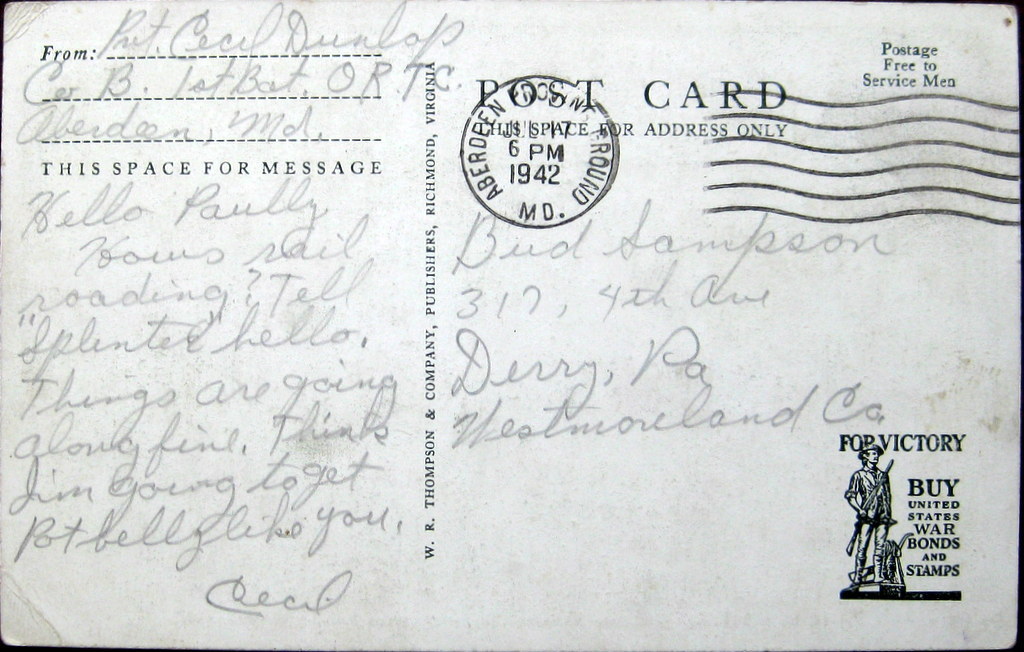 From: Pvt. Cecil Dunlap
Co. B. 1st Bat. O.R.T.C.
Aberdeen, Md.
THIS SPACE FOR MESSAGE
Hello Paully
Hows rail
roading? Tell
"Splinter" hello.
Things are going
along fine. Think
Jim going to get
Pot belly like you.
Cecil
W. R. THOMPSON & COMPANY, PUBLISHERS, RICHMOND, VIRGINIA
POST CARD
THIS SPACE FOR ADDRESS ONLY
Postage
Free to
Service Men
ABERDEEN PROVING GROUND
JUL 17
6 PM
1942
MD.
Bud Sampson
317, 4th Ave
Derry, Pa
Westmoreland Co
FOR VICTORY
BUY
UNITED
STATES
WAR
BONDS
AND
STAMPS